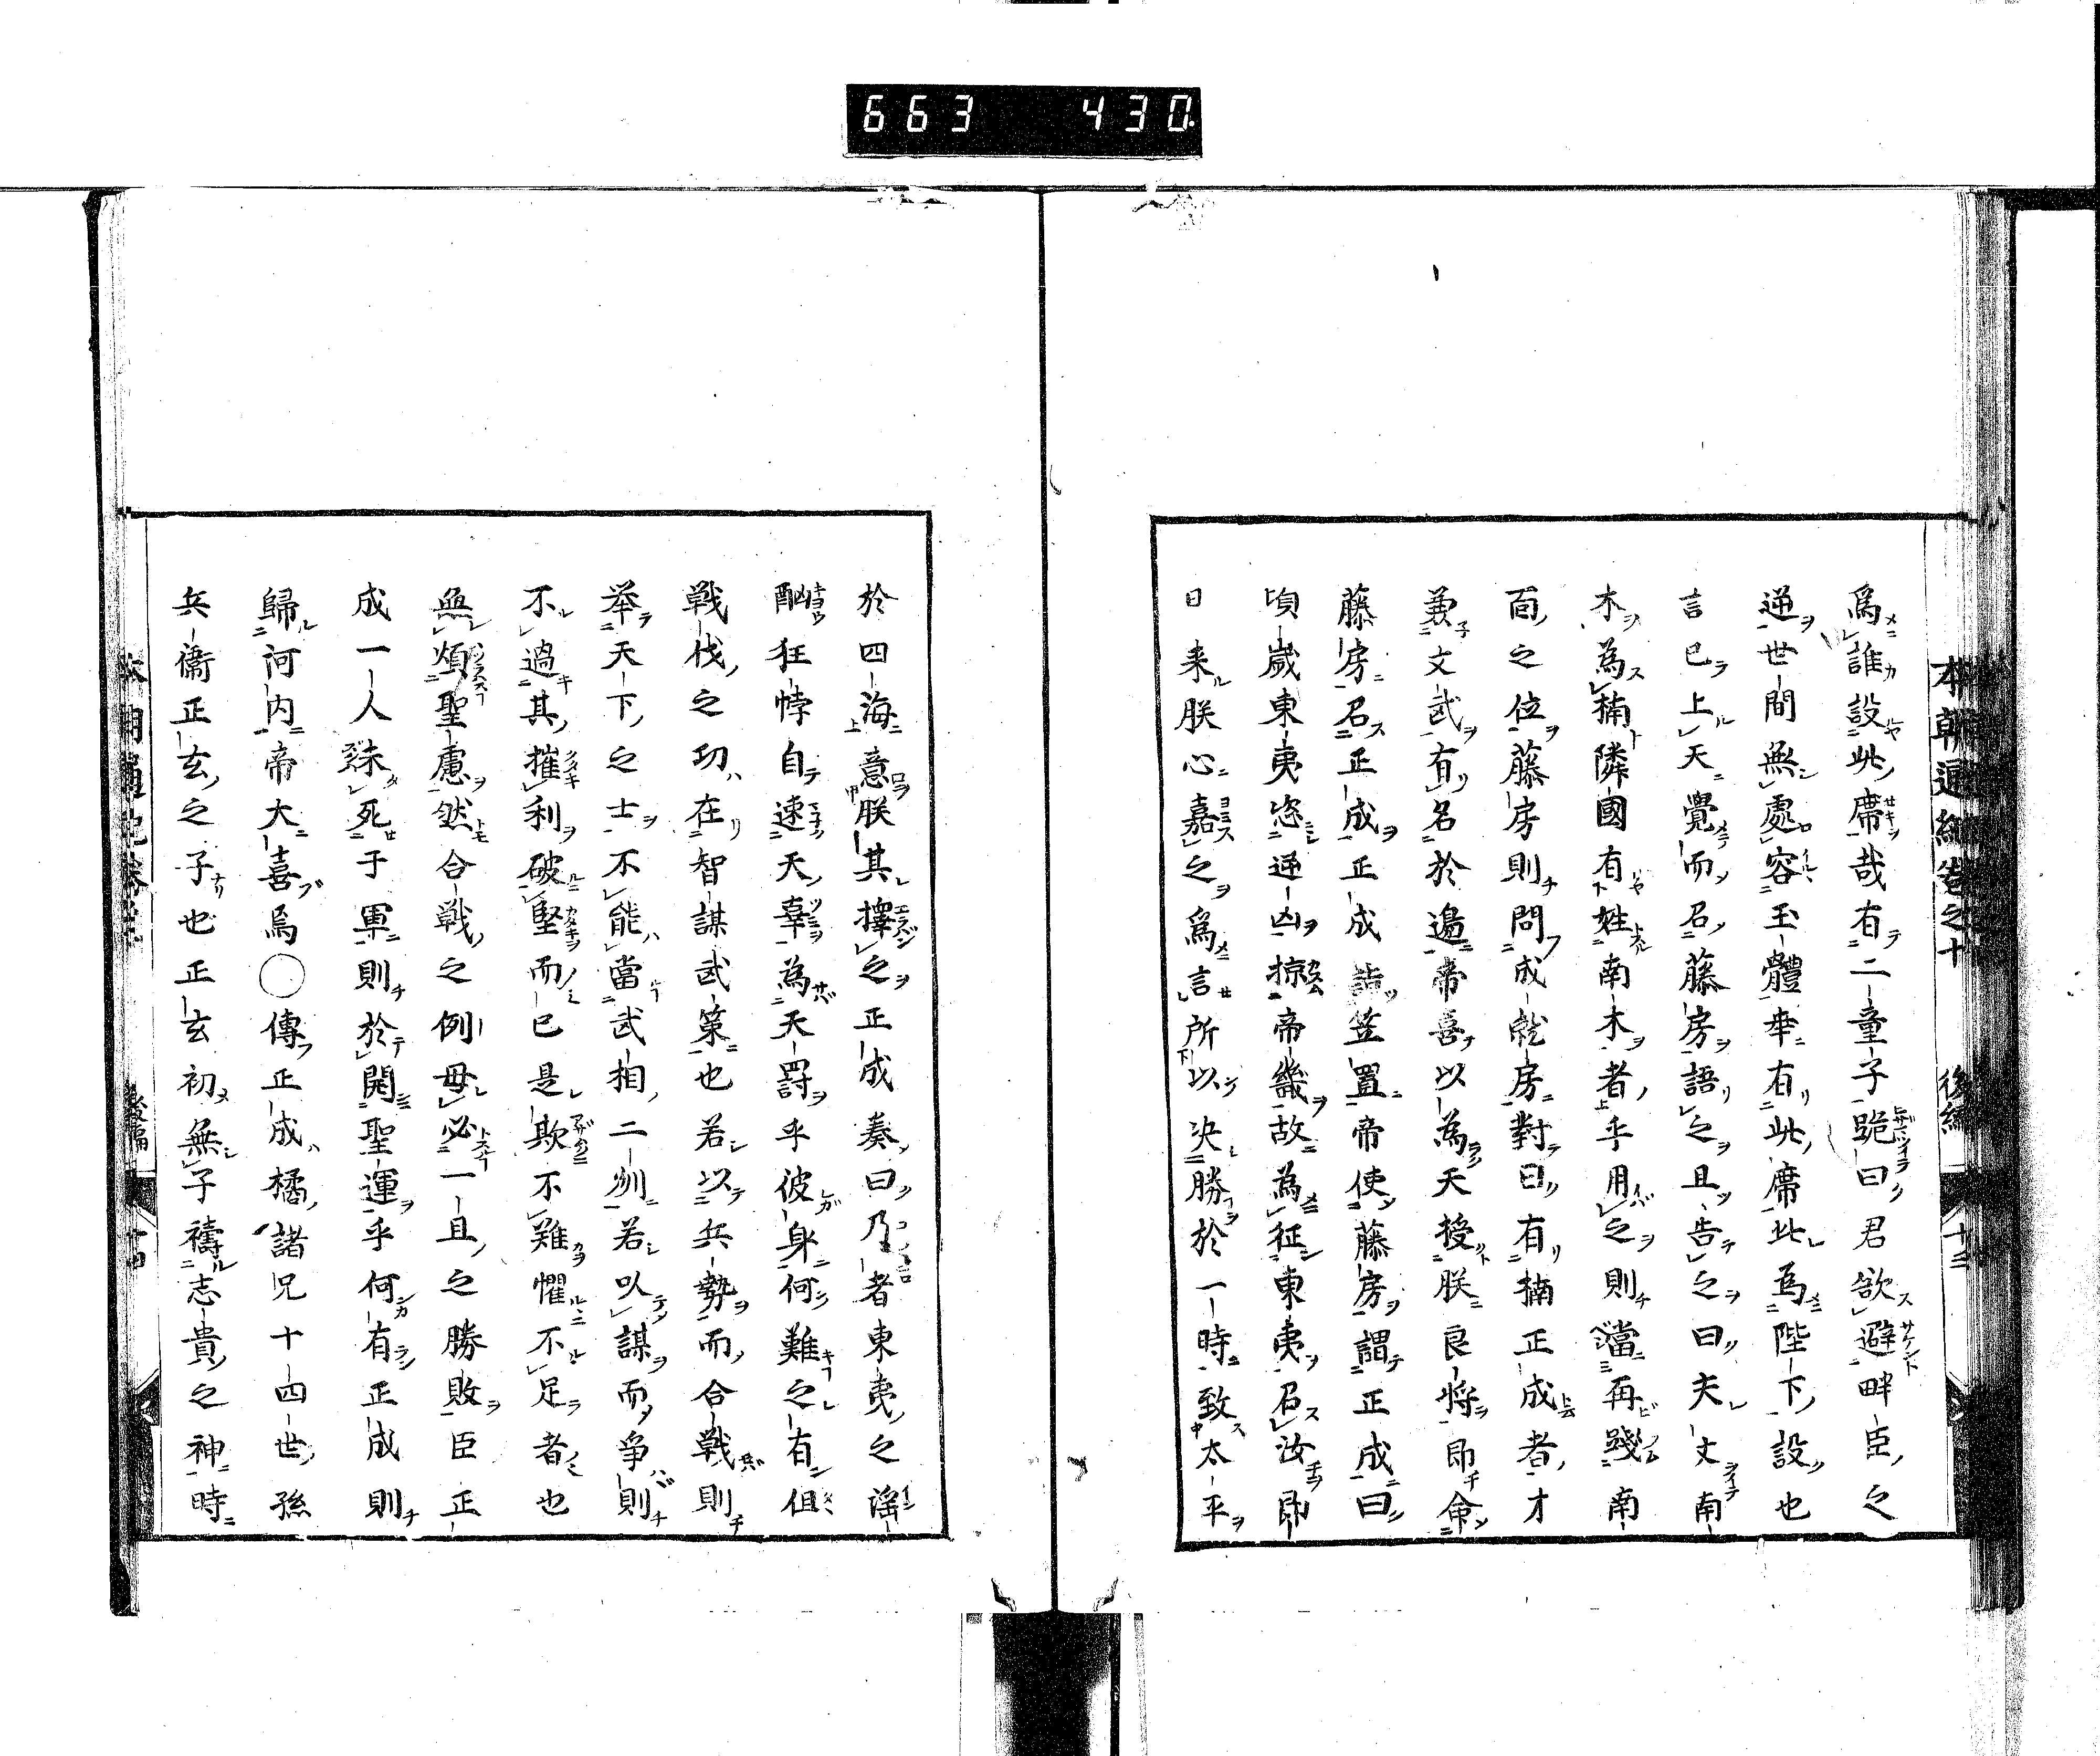 663 430
本朝通紀卷之十 後編 十三
爲誰設此席哉有二童子跪曰君欲避畔臣之
逆世間無處容玉體幸有此席此爲陛下設也
言已上天覺而召藤房語之且告之曰夫丈南
木為楠隣國有姓南木者乎用之則當再踐南
面之位藤房則問成就房對曰有楠正成者才
兼文武有名於邊帝喜以為天授朕良将即命
藤房召正成正成詣笠置帝使藤房謂正成曰
頃歳東夷恣逆凶掠帝畿故為征東夷召汝即
日来朕心嘉之爲言所以决勝於一時致太平
於四海意朕其擇之正成奏曰乃者東夷之謡
酗狂悖自速天辜為天罸乎彼身何難之有但
戦伐之功在智謀武策也若以兵勢而合戦則
举天下之士不能當武相二州若以謀而争則
不過其摧利破堅而已是欺不難懼不足者也
無煩聖慮然合戦之例毋必一旦之勝敗臣正
成一人未死于軍則於開聖運乎何有正成則
歸河内帝大喜焉○傳正成橘諸兄十四世孫
兵衞正玄之子也正玄初無子禱志貴之神時